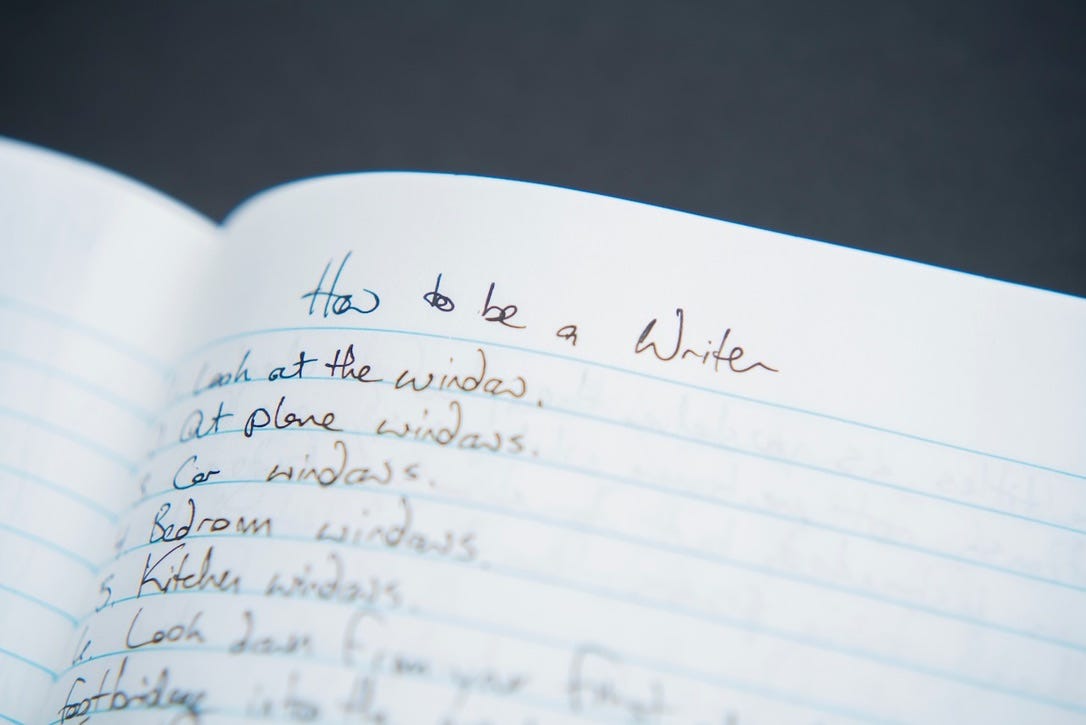 How to be a Writer
Look at the window.
At plane windows.
3. Car windows.
4. Bedroom windows.
5. Kitchen windows.
6. Look down from your
footbridge into the